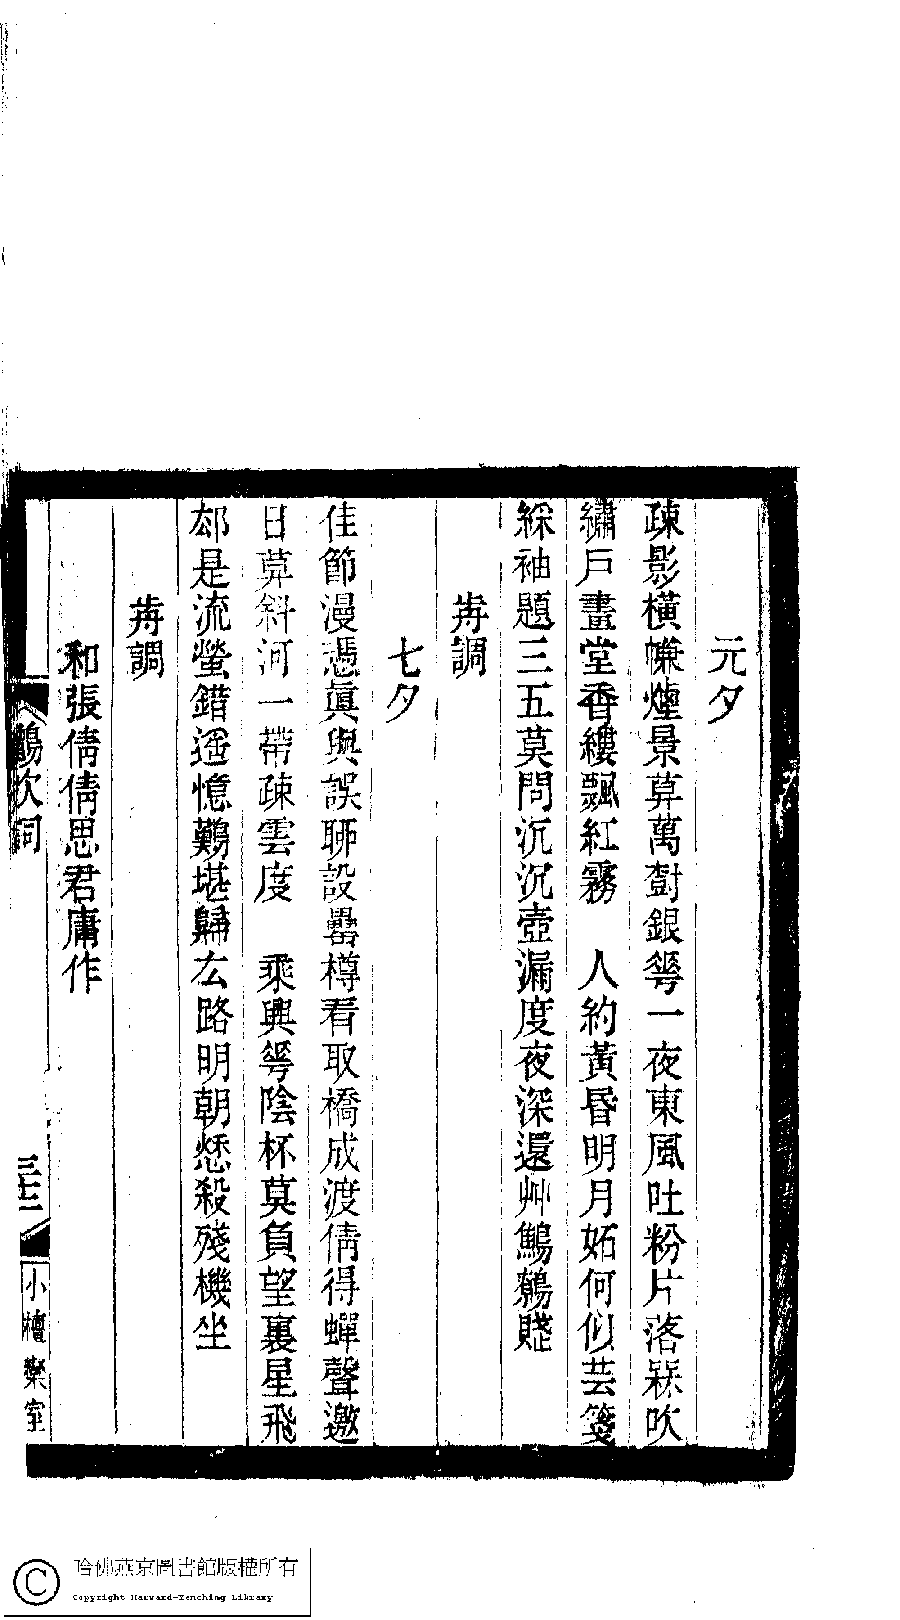 元夕
疎影橫㡘煙景莫萬對銀雩一夜東風吐粉片落槑吹
繡戶畫堂香縷飄紅霧　人約黃昏明月妬何似芸箋
綵袖題三五莫問沉沉壺漏度夜深還艸鷦鷯賤
歬調
七夕
佳節漫憑眞與誤聊設罍樽看取橋成渡倩得蟬聲邀
日莫斜河一帶疎雲度　乘興雩陰杯莫負望裏星飛
卻是流螢錯遥憶鸛堪歸厺路明朝愁殺殘機坐
歬調
和張倩倩思君庸作
鷉吹詞
三十二
小檀欒室
哈佛燕京圖書館版權所有
Copyright Harvard-Yenching Library